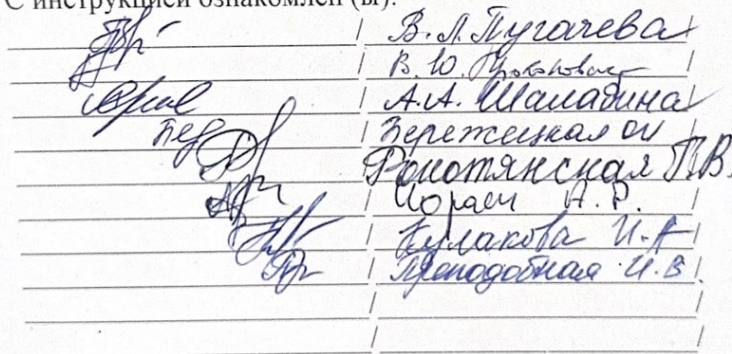 С инструкцией ознакомлен (ы):
/ В. Л. Пугачева /
/ В. Ю. /
/ А.А. Шаладина /
/ Бережецкая ОИ /
/ Рокотянская П.В.
/ А. Р. /
/ Кулакова И. А /
/ Преподобная И. В /
/ /
/ /